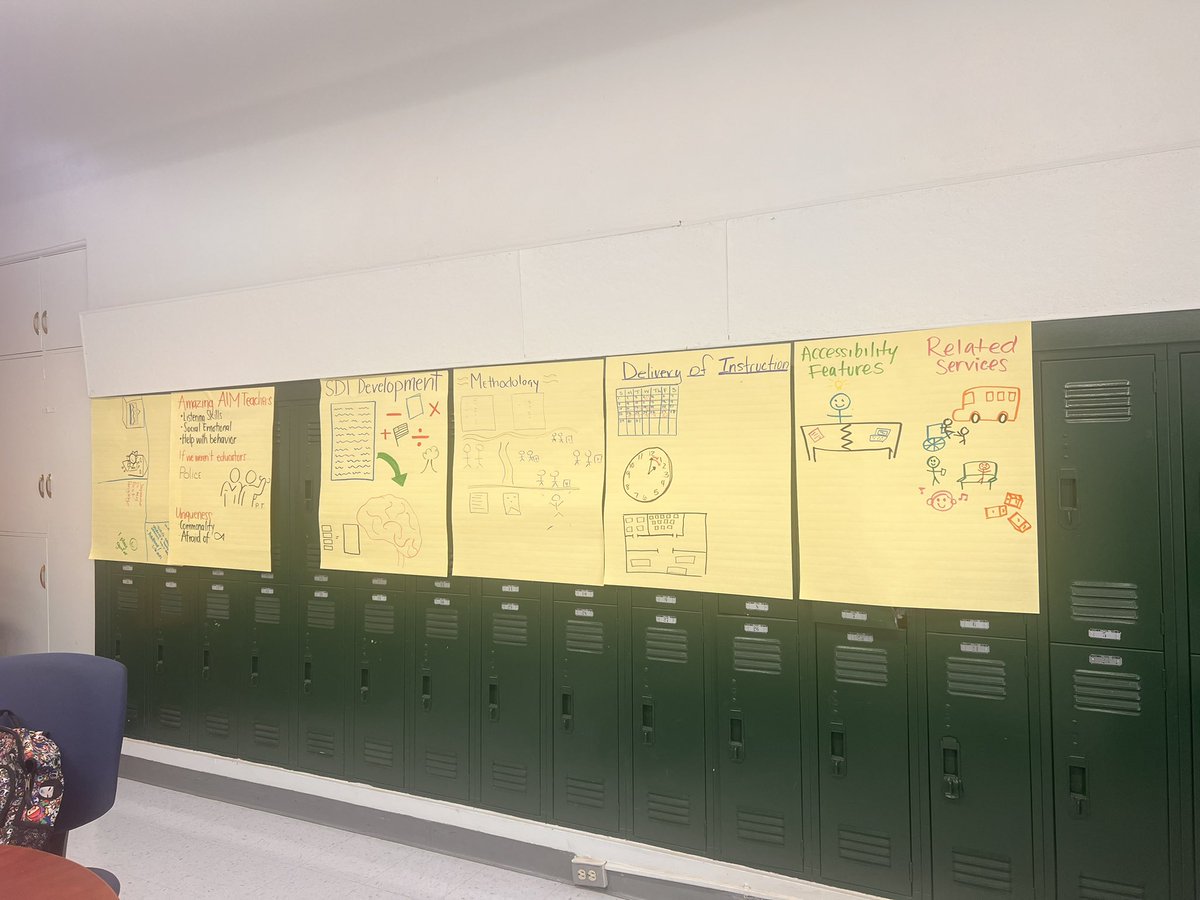 Amazing AIM Teachers
• Listening Skills
• Social Emotional
• Help with behavior
If we weren't educators...
Police
P.T.
Uniqueness
Commonality
Afraid of
SDI Development
Methodology
Delivery of Instruction
S M T W T F S
Accessibility
Features
Related
Services